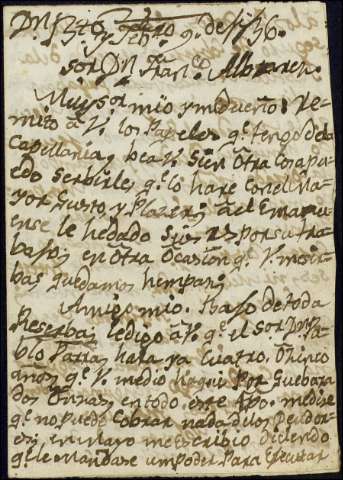 y Feb.º 9. de 1736.
Sor Dn Fran.co Albaren.
Muy sor mio y mi Dueño: Re
mito a V. los Papeles q.e tengo de la
Capellania, y bea V. si en otra Cosa pu
edo serbirles q.e lo hare con el Ma
yor Gusto y Plazer; a el Amanu
ense le he dado por su tra
bajo; en otra Ocasion q.e V. me sir
ba; quedamos
Amigo mio. Bajo de toda
Reserba, le digo a V. q.e el Sor Dn Pa
blo Parras hara ya cuatro, o cinco
años q.e V. me dio haqui Por Guebara
dos Onzas, en todo este tpo. me dice
q.e no puede Cobrar nada de los Deudor
es; en Mayo me escribio diciendo
q.e le Mandase un poder Para Executar